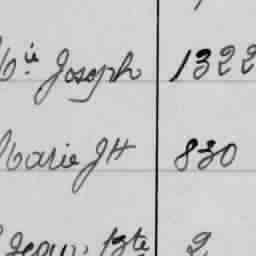 Mie Joseph 1322
Marie JH 830
Jean Bte 2